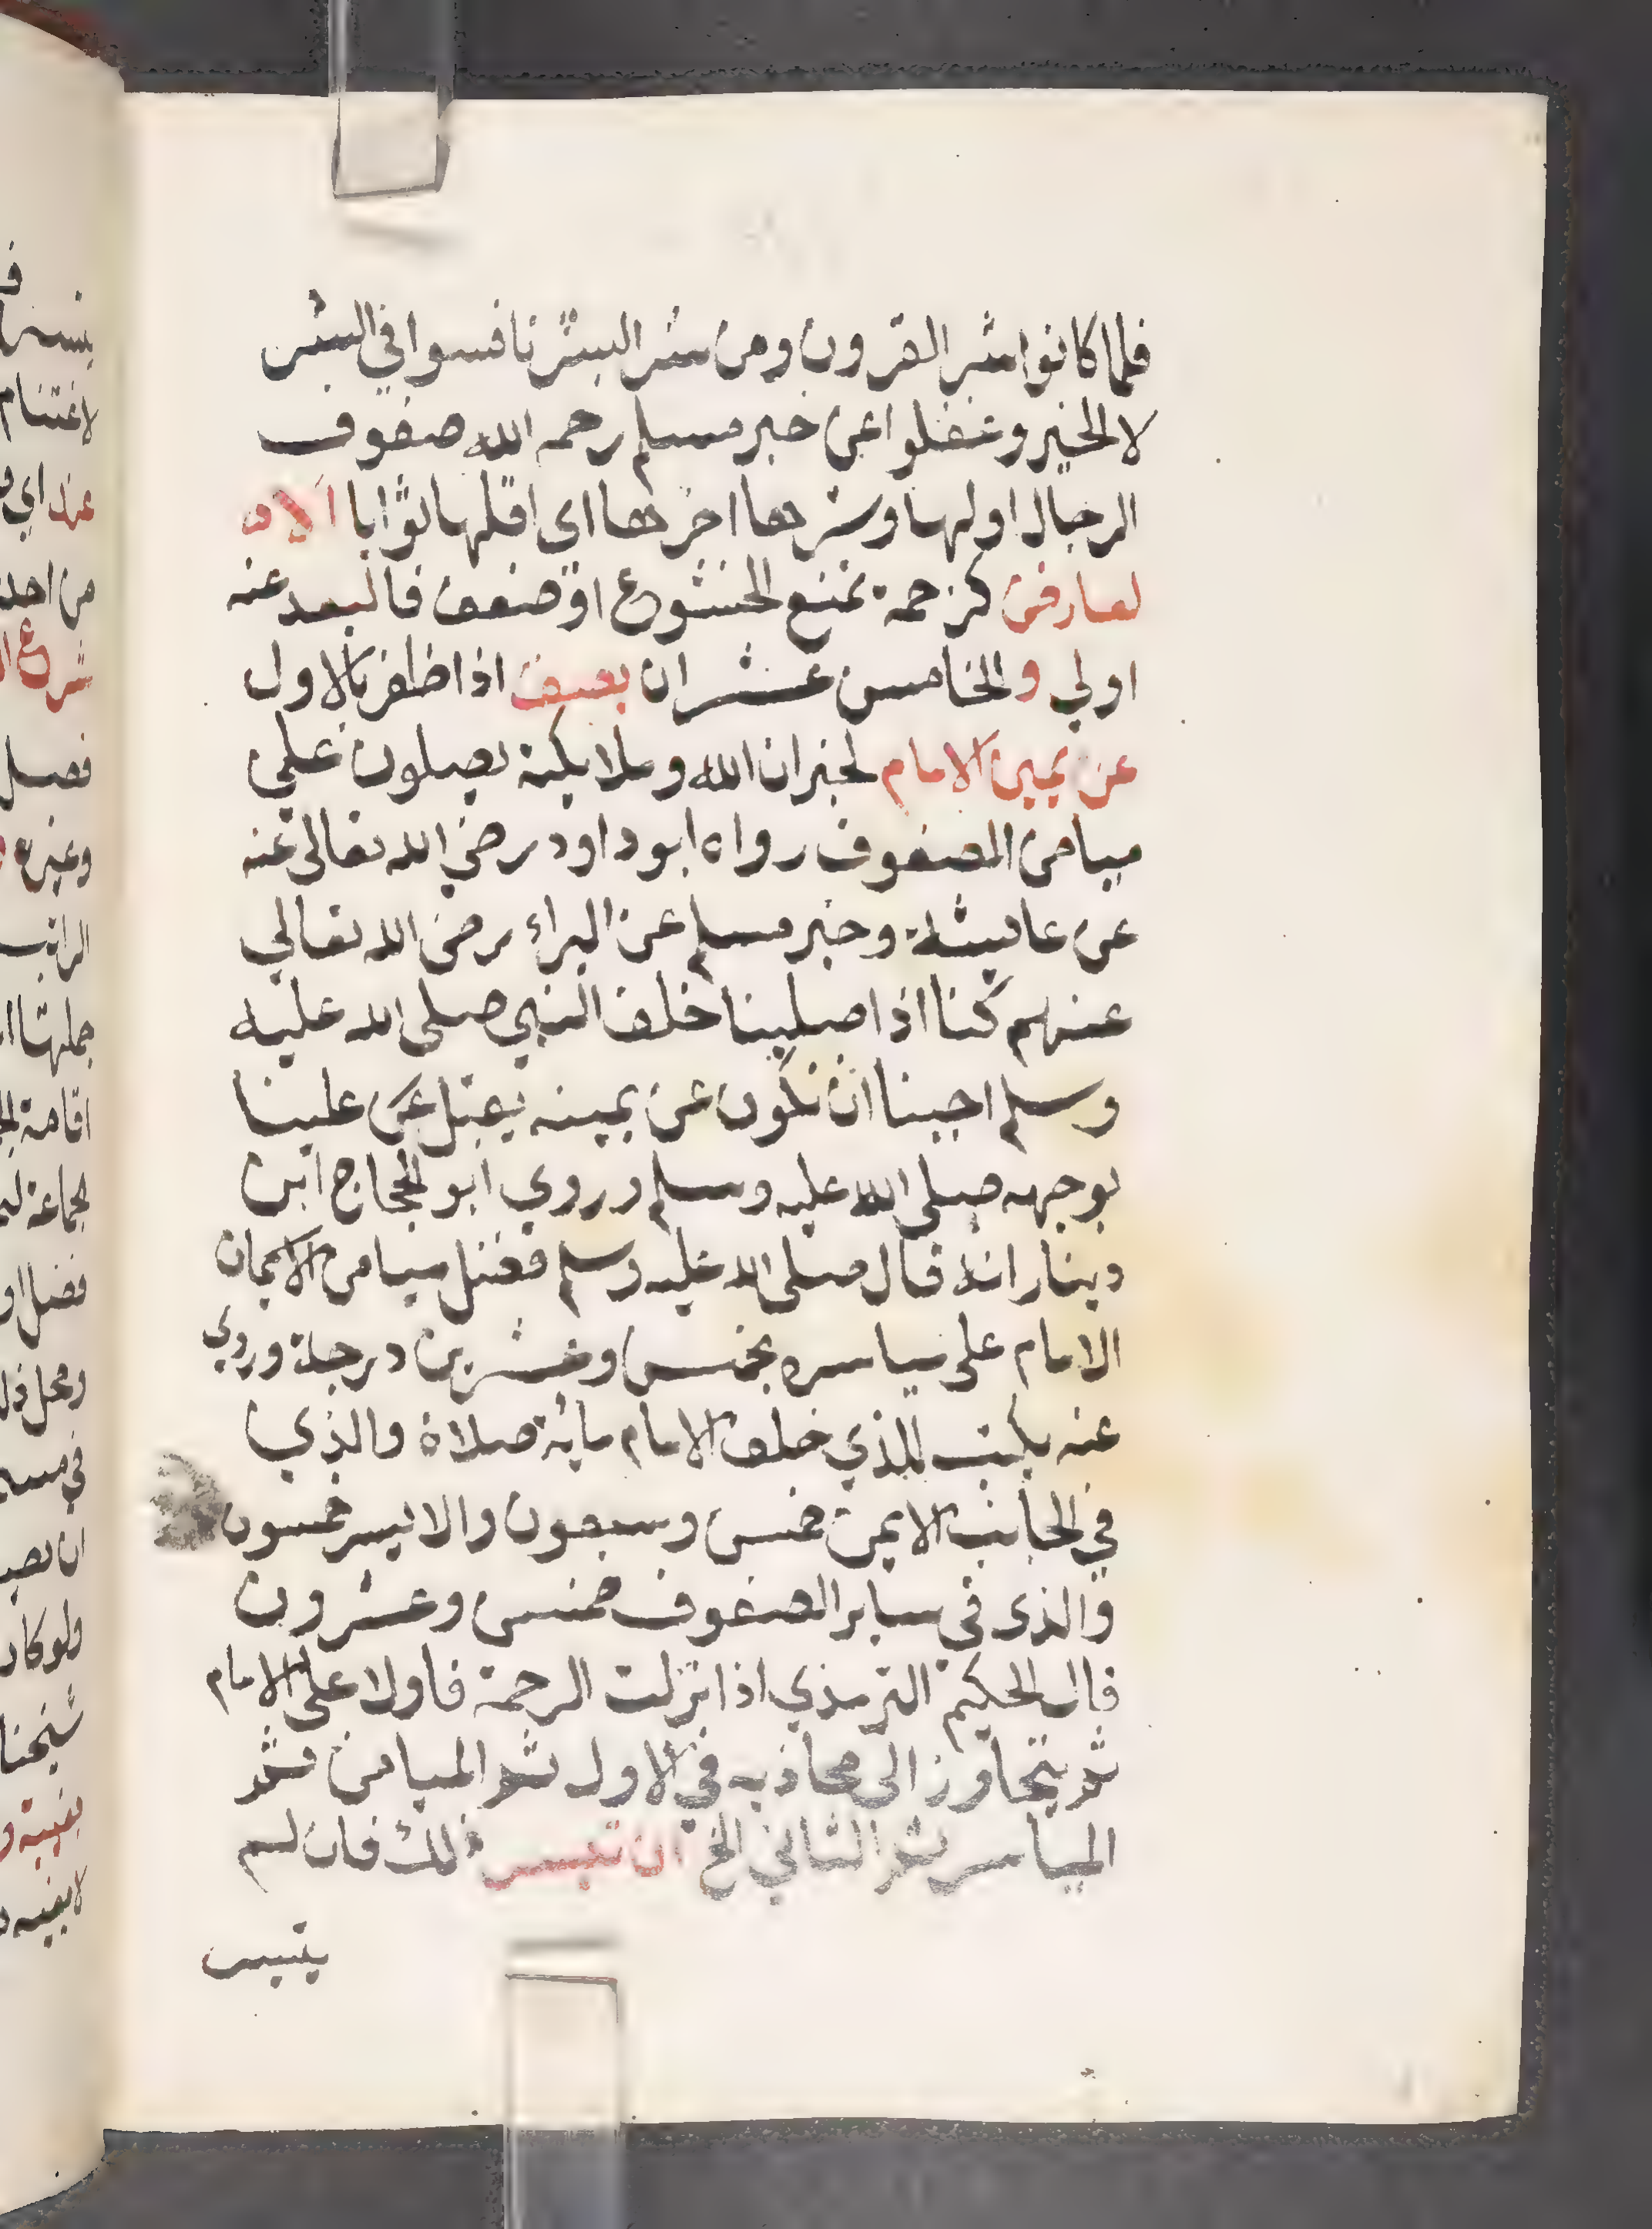 فلما كانوا شر القرون ومن شر البشر نافسوا في الشر
لا الخير وغفلوا عن خبر مسلم رحمه الله صفوف
الرجال اولها وشرها اخرها اي اقلها ثوابا الا
لعارض كزحمة تمنع الخشوع او ضعف فالبعد عنه
اولي والخامس عشر ان يصف اذا ظفر بالاول
عن يمين الامام لخبر ان الله وملايكته يصلون علي
ميامن الصفوف رواه ابو داود رضي الله تعالى عنه
عن عايشة وخبر مسلم عن البراء رضي الله تعالي
عنهم كنا اذا صلينا خلف النبي صلى الله عليه
وسلم احبينا ان نكون عن يمينه يقبل علينا
بوجهه صلى الله عليه وسلم وروي ابو الحجاج ابن
دينار انه قال صلى الله عليه وسلم فضل ميامن الايمان
الامام على مياسره بخمس وعشرين درجة وروي
عنه يكتب للذي خلف الامام ماية صلاة والذي
في الجانب الايمن خمس وسبعون والايسر خمسون
والذي في ساير الصفوف خمس وعشرون
قال الحكيم الترمذي اذا نزلت الرحمة فاولا على الامام
ثم يتجاوز الى محاذيه في الاول ثم الميامن ثم
المياسر ثم الثاني الخ ان تيسر ذلك فان لم
يتيسر